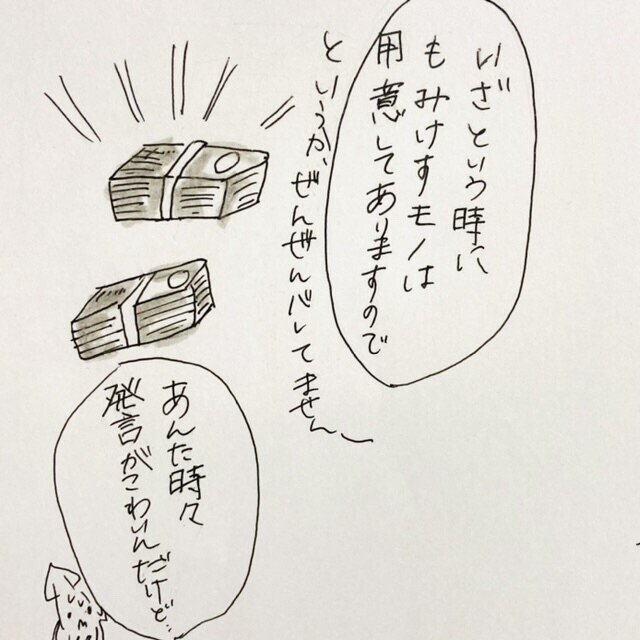 いざという時に
もみけすモノは
用意してありますので
というか、ぜんぜんバレてません
あんた時々
発言がこわいんだけど…